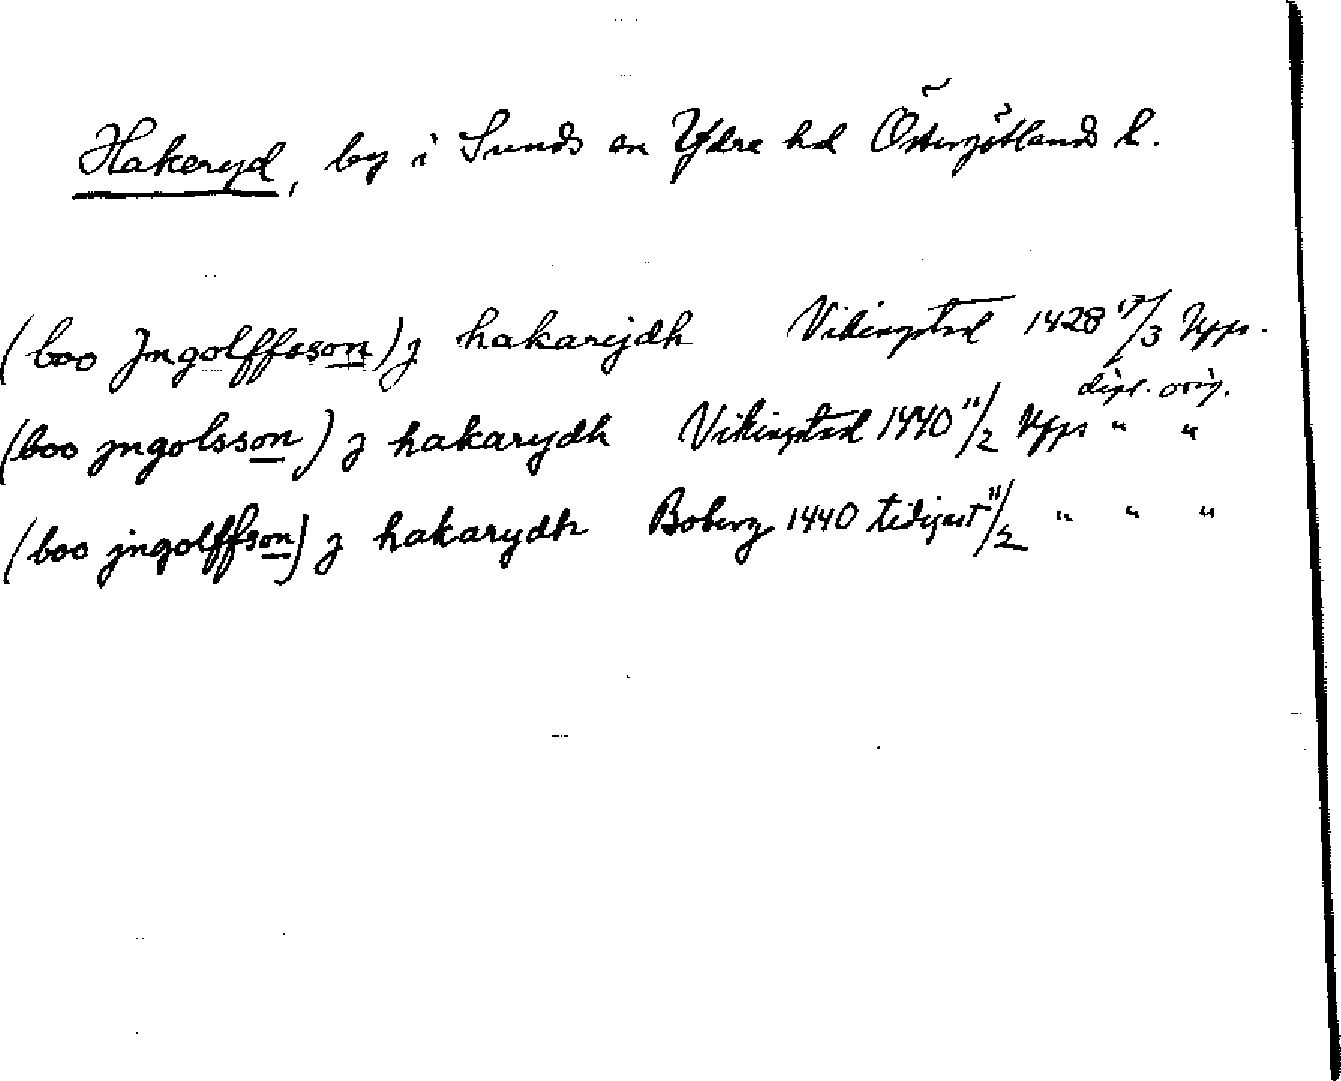 Hakeryd, by i Sunds sn Ydre hd Östergötlands l.
(boo Jngolffsson) j hakarijdh Vikingstad 1428 17/3 Upps. dipl. orig.
(boo jngolsson) j hakarydh Vikingstad 1440 11/2 Upps " "
(boo jngolffson) j hakarydh Boberg 1440 tidigast 11/2 " " "